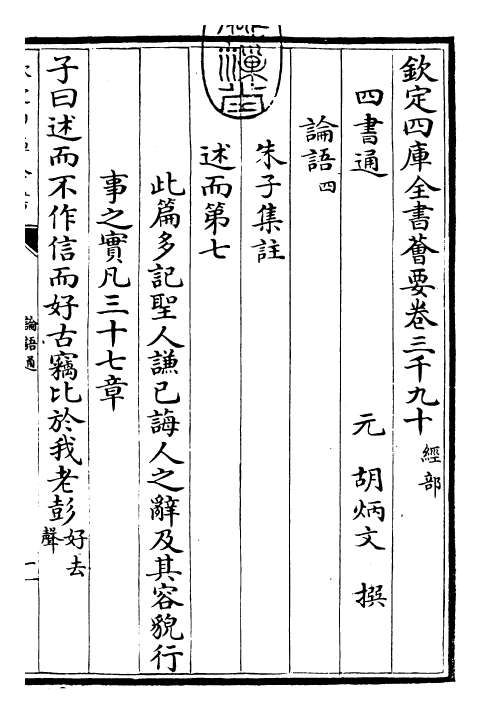 欽定四庫全書薈要卷三千九十 經部
四書通 元 胡炳文 撰
論語四
朱子集註
述而第七
此篇多記聖人謙已誨人之辭及其容貌行
事之實凡三十七章
子曰述而不作信而好古竊比於我老彭好去聲
論語通